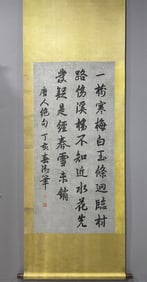 一樹寒梅白玉條迥臨村
路傍溪橋不知近水花先
發疑是經春雪未銷
唐人絕句 丁亥春 筆